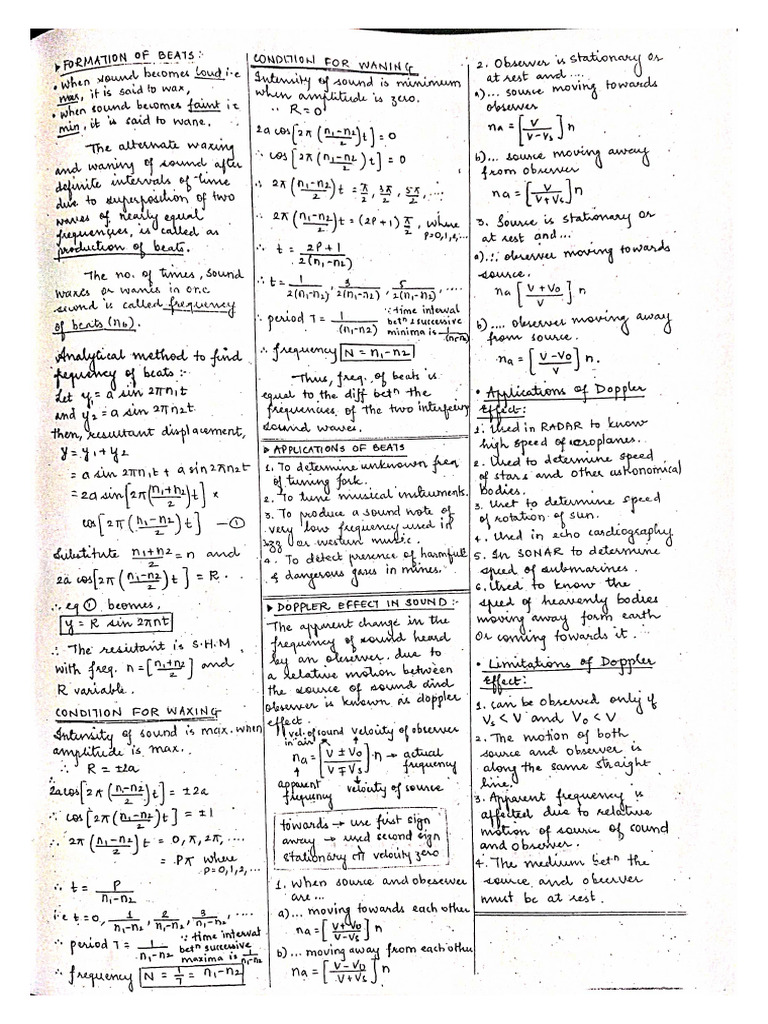 ▸ FORMATION OF BEATS :-
• When sound becomes loud i.e
max, it is said to wax,
• When sound becomes faint i.e
min, it is said to wane.
The alternate waxing
and waning of sound after
definite intervals of time
due to superposition of two
waves of nearly equal
frequencies, is called as
production of beats.
The no. of times, sound
waxes or wanes in one
second is called frequency
of beats (nb).
Analytical method to find
frequency of beats :-
Let y₁ = a sin 2πn₁t
and y₂ = a sin 2πn₂t
then, resultant displacement,
y = y₁ + y₂
= a sin 2πn₁t + a sin 2πn₂t
= 2a sin[2π((n₁+n₂)/2)t] ×
cos[2π((n₁-n₂)/2)t] —①
Substitute (n₁+n₂)/2 = n and
2a cos[2π((n₁-n₂)/2)t] = R.
∴ eq ① becomes,
y = R sin 2πnt
∴ The resultant is S.H.M,
with freq. n = [(n₁+n₂)/2] and
R variable.
CONDITION FOR WAXING
Intensity of sound is max. when
amplitude is max.
∴ R = ±2a
2a cos[2π((n₁-n₂)/2)t] = ±2a
∴ cos[2π((n₁-n₂)/2)t] = ±1
∴ 2π((n₁-n₂)/2)t = 0, π, 2π, ....
= Pπ where
P=0,1,2,...
∴ t = P/(n₁-n₂)
i.e t=0, 1/(n₁-n₂), 2/(n₁-n₂), 3/(n₁-n₂), ....
∴ period T = 1/(n₁-n₂) ∵ time interval
betⁿ successive
maxima is 1/(n₁-n₂)
∴ frequency N = 1/T = n₁-n₂
CONDITION FOR WANING
Intensity of sound is minimum
when amplitude is zero.
∴ R = 0
2a cos[2π((n₁-n₂)/2)t] = 0
∴ cos[2π((n₁-n₂)/2)t] = 0
∴ 2π((n₁-n₂)/2)t = π/2, 3π/2, 5π/2, ...
∴ 2π((n₁-n₂)/2)t = (2P+1)π/2, where
P=0,1,2,...
∴ t = (2P+1)/(2(n₁-n₂))
∴ t = 1/(2(n₁-n₂)), 3/(2(n₁-n₂)), 5/(2(n₁-n₂)), ....
∴ period T = 1/(n₁-n₂) ∵ time interval
betⁿ successive
minima is 1/(n₁-n₂)
∴ frequency N = n₁-n₂
Thus, freq. of beats is
equal to the diff betⁿ the
frequencies of the two interfering
sound waves.
▸ APPLICATIONS OF BEATS
1. To determine unknown freq
of tuning fork.
2. To tune musical instruments.
3. To produce a sound note of
very low frequency used in
or western music.
4. To detect presence of harmful
& dangerous gases in mines.
▸ DOPPLER EFFECT IN SOUND :-
The apparent change in the
frequency of sound heard
by an observer, due to
a relative motion between
the source of sound and
observer is known as doppler
effect.
vel. of sound velocity of observer
in air
na = [(V ± Vo)/(V ∓ Vs)]·n → actual
frequency
apparent
frequency velocity of source
towards → use first sign
away → used second sign
stationary velocity zero
1. When source and obeserver
are ...
a) ... moving towards each other
na = [(V+Vo)/(V-Vs)] n
b) ... moving away from each other
na = [(V-Vo)/(V+Vs)] n
2. Observer is stationary or
at rest and ...
a) ... source moving towards
observer
na = [V/(V-Vs)] n
b) ... source moving away
from observer
na = [V/(V+Vs)] n
3. Source is stationary or
at rest and ...
a) ... observer moving towards
source.
na [(V+Vo)/V] n
b) .... observer moving away
from source.
na = [(V-Vo)/V] n.
• Applications of Doppler
Effect :
1. Used in RADAR to know
high speed of aeroplanes.
2. Used to determine speed
of stars and other astronomical
bodies.
3. Uset to determine speed
of rotation of sun.
4. Used in echo cardiography
5. In SONAR to determine
speed of submarines.
6. Used to know the
speed of heavenly bodies
moving away form earth
or coming towards it.
• Limitations of Doppler
Effect :
1. can be observed only if
Vs < V and Vo < V
2. The motion of both
source and observer is
along the same straight
line.
3. Apparent frequency is
affected due to relative
motion of source of sound
and observer.
4. The medium betⁿ the
source and observer
must be at rest.